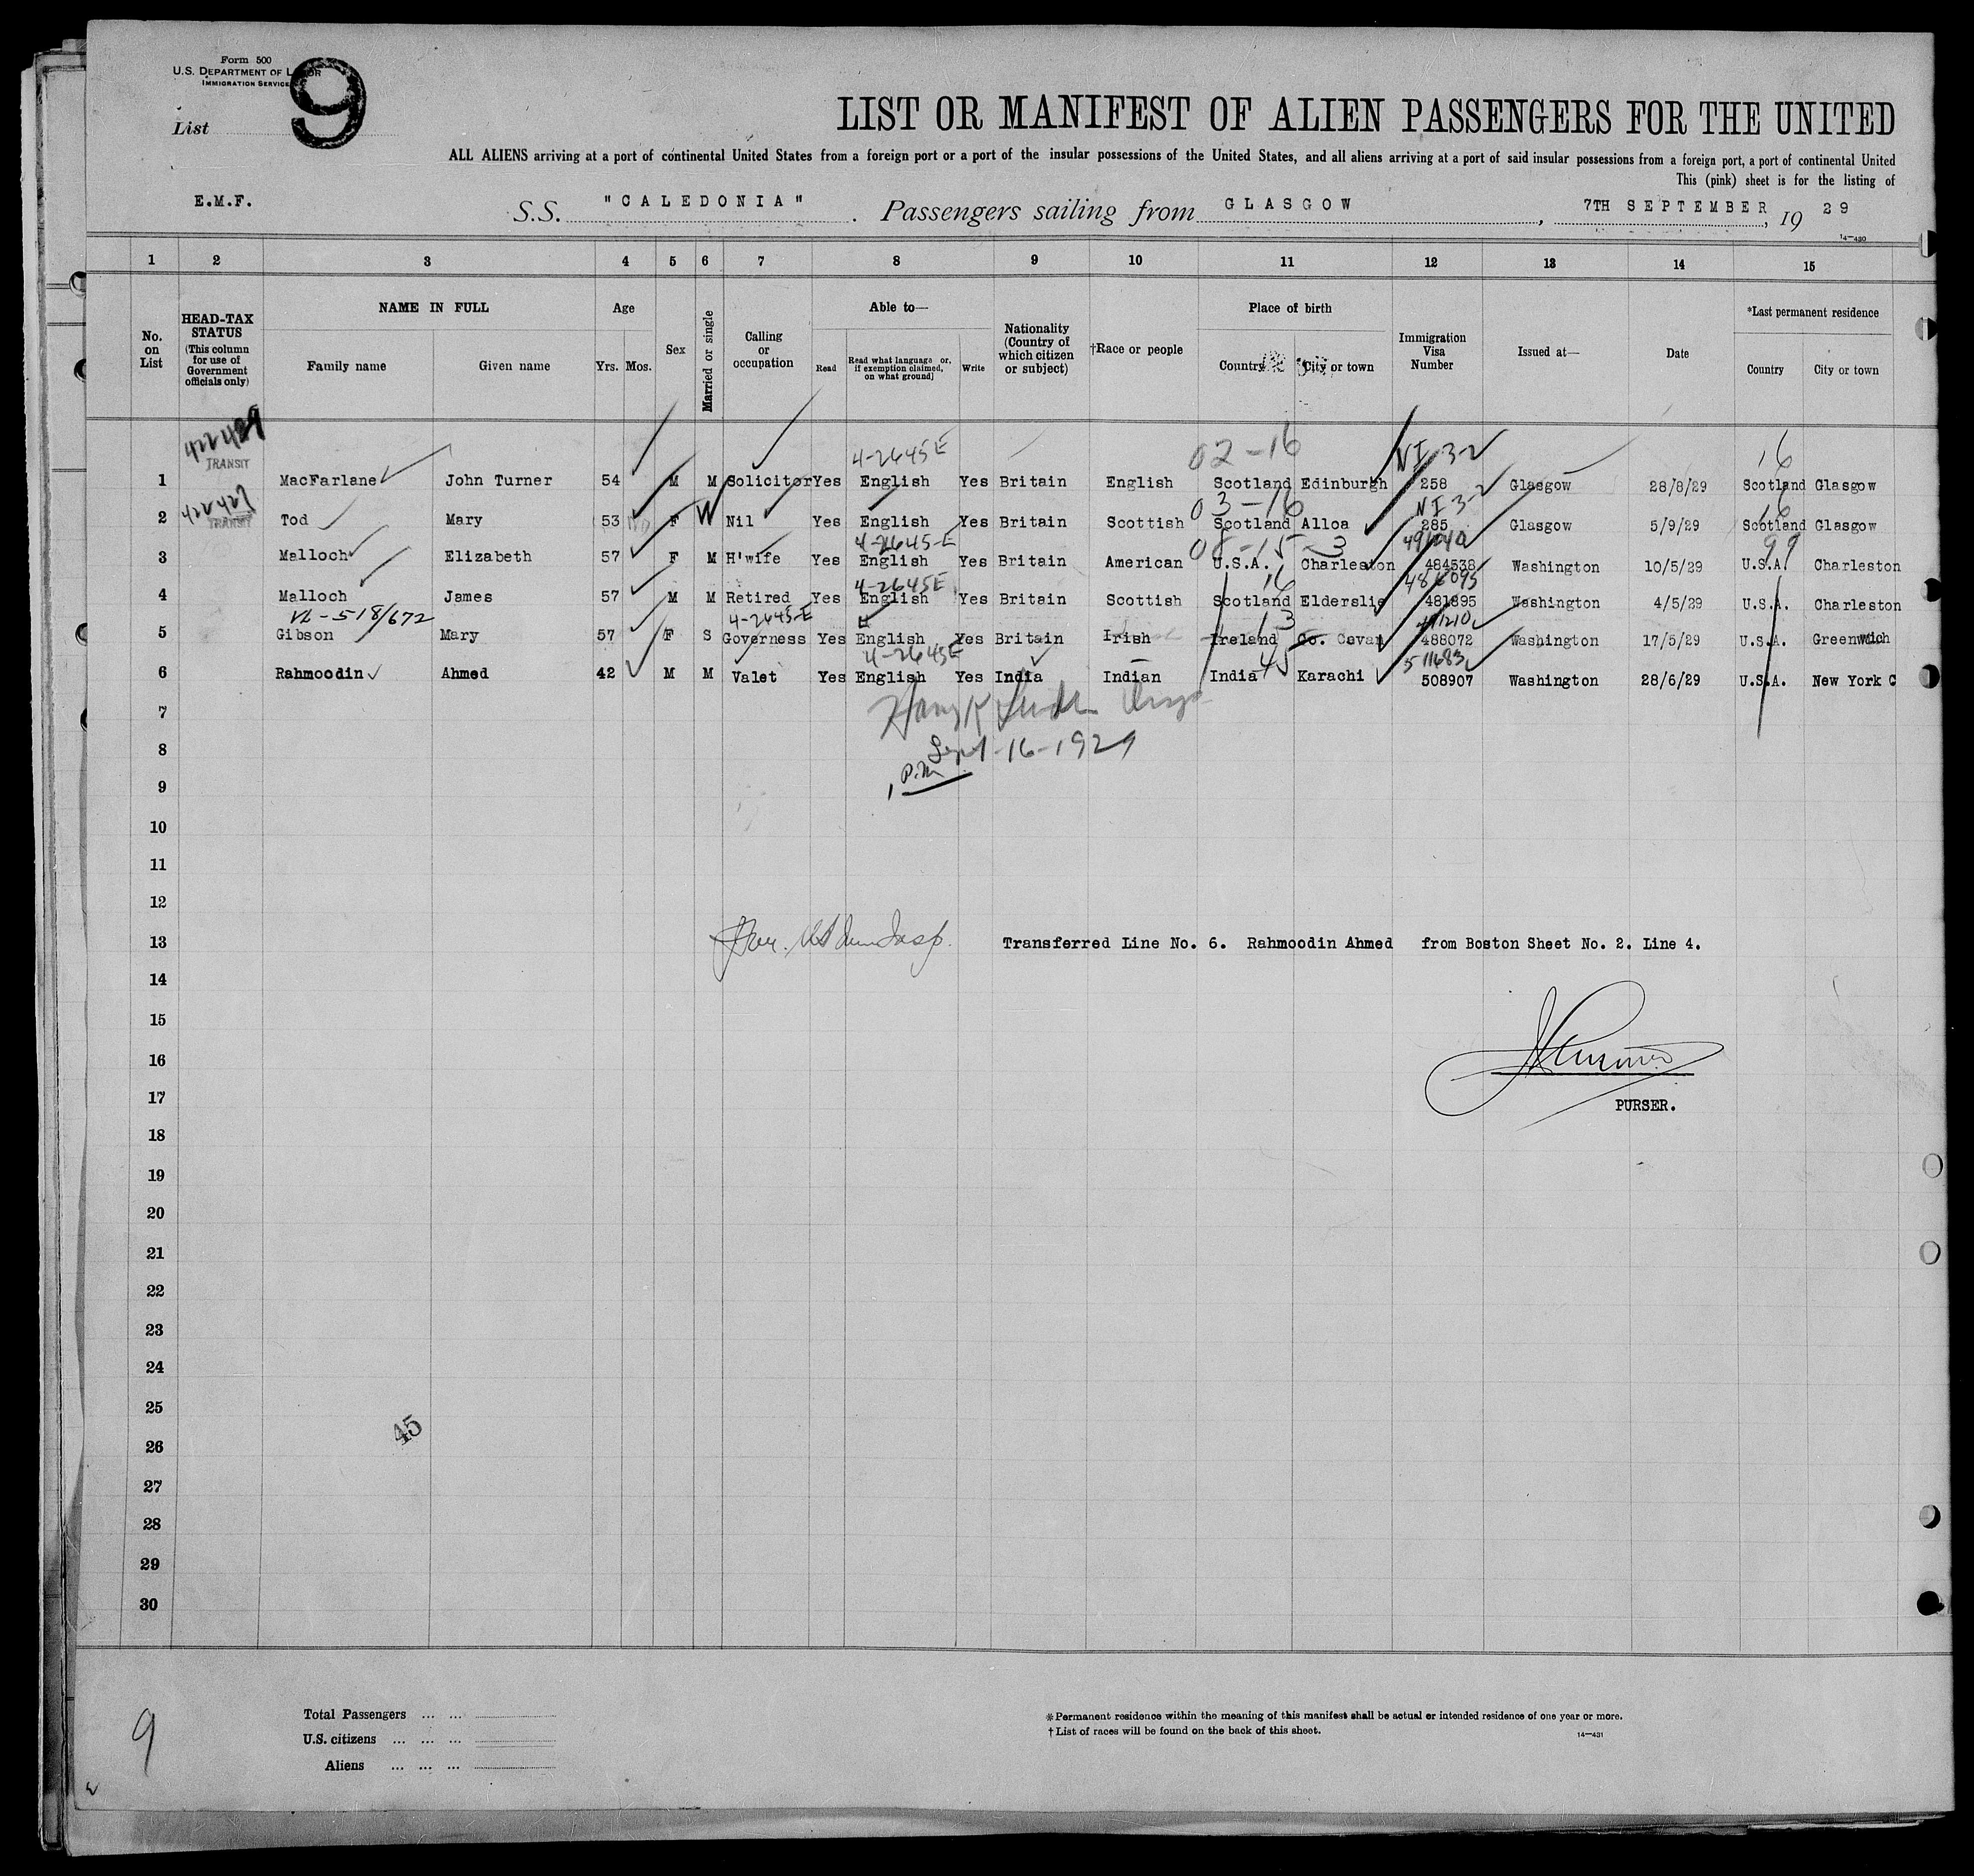 Form 500
U.S. DEPARTMENT OF LABOR
IMMIGRATION SERVICE
9
List
LIST OR MANIFEST OF ALIEN PASSENGERS FOR THE UNITED
ALL ALIENS arriving at a port of continental United States from a foreign port or a port of the insular possessions of the United States, and all aliens arriving at a port of said insular possessions from a foreign port, a port of continental United
This (pink) sheet is for the listing of
E.M.F. S.S. "CALEDONIA". Passengers sailing from GLASGOW, 7TH SEPTEMBER, 19 29
14—430
1 2 3 4 5 6 7 8 9 10 11 12 13 14 15
No. on List
HEAD-TAX STATUS (This column for use of Government officials only)
NAME IN FULL
Family name Given name
Age
Yrs. Mos.
Sex
Married or single
Calling or occupation
Able to—
Read
Read what language or, if exemption claimed, on what ground]
Write
Nationality (Country of which citizen or subject)
†Race or people
Place of birth
Country City or town
Immigration Visa Number
Issued at—
Date
*Last permanent residence
Country City or town
422489 4-2645E 02-16 NI 3-2 16
TRANSIT
1 MacFarlane John Turner 54 M M Solicitor Yes English Yes Britain English Scotland Edinburgh 258 Glasgow 28/8/29 Scotland Glasgow
422427 03-16 NI 3-2 16
TRANSIT
2 Tod Mary 53 F W Nil Yes English Yes Britain Scottish Scotland Alloa 285 Glasgow 5/9/29 Scotland Glasgow
4-2645-E 08-15-3 99
3 Malloch Elizabeth 57 F M H'wife Yes English Yes Britain American U.S.A. Charleston 484538 Washington 10/5/29 U.S.A. Charleston
4-2645E 16 486095
4 Malloch James 57 M M Retired Yes English Yes Britain Scottish Scotland Elderslie 481895 Washington 4/5/29 U.S.A. Charleston
VL-518/672 4-2645-E 13
5 Gibson Mary 57 F S Governess Yes English Yes Britain Irish Ireland Co. Cavan 488072 Washington 17/5/29 U.S.A. Greenwich
4-2645E 45 511683
6 Rahmoodin Ahmed 42 M M Valet Yes English Yes India Indian India Karachi 508907 Washington 28/6/29 U.S.A. New York C
7
Sept-16-1929
8
P.M.
9
10
11
12
13 Transferred Line No. 6. Rahmoodin Ahmed from Boston Sheet No. 2. Line 4.
14
15
16
17 PURSER.
18
19
20
21
22
23
24
25
45
26
27
28
29
30
9
Total Passengers ... ...
U.S. citizens ... ... ...
Aliens ... ... ...
*Permanent residence within the meaning of this manifest shall be actual or intended residence of one year or more.
†List of races will be found on the back of this sheet.
14—431